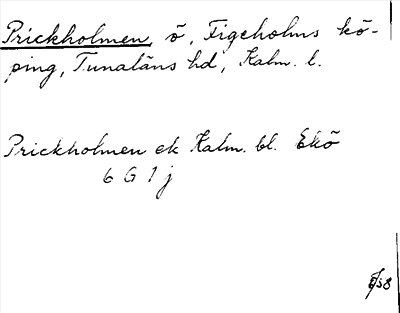 Prickholmen, ö, Figeholms kö-
ping, Tunaläns hd, Kalm. l.
Prickholmen ek Kalm. bl. Ekö
6 G 1 j